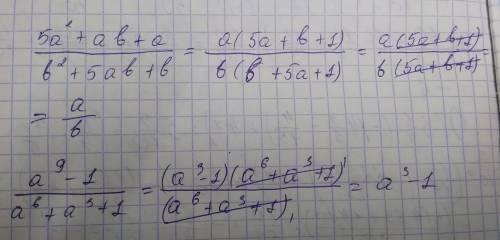 (5a² + ab + a)/(b² + 5ab + b) = a(5a + b + 1)/b(b + 5a + 1) = a(5a + b + 1)/b(5a + b + 1) =
= a/b
(a⁹ - 1)/(a⁶ + a³ + 1) = (a³ - 1)(a⁶ + a³ + 1)¹/(a⁶ + a³ + 1)₁ = a³ - 1